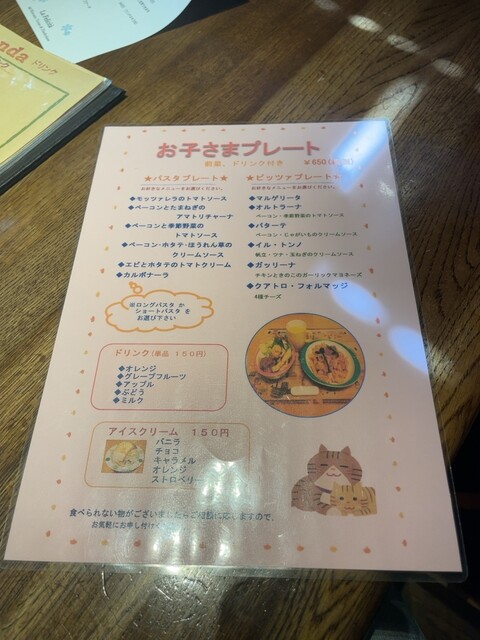 ドリンク
お子さまプレート
前菜、ドリンク付き ￥650
★パスタプレート★
お好きなメニューをお選びください。
◆モッツァレラのトマトソース
◆ベーコンとたまねぎの
アマトリチャーナ
◆ベーコンと季節野菜の
トマトソース
◆ベーコン・ホタテ・ほうれん草の
クリームソース
◆エビとホタテのトマトクリーム
◆カルボナーラ
※ロングパスタ か
ショートパスタ を
お選び下さい
★ピッツァプレート★
お好きなメニューをお選びください。
◆マルゲリータ
◆オルトラーナ
ベーコン・季節野菜のトマトソース
◆パターテ
ベーコン・じゃがいものクリームソース
◆イル・トンノ
帆立・ツナ・玉ねぎのクリームソース
◆ガッリーナ
チキンときのこのガーリックマヨネーズ
◆クアトロ・フォルマッジ
4種チーズ
ドリンク(単品 １５０円)
◆オレンジ
◆グレープフルーツ
◆アップル
◆ぶどう
◆ミルク
アイスクリーム １５０円
バニラ
チョコ
キャラメル
オレンジ
ストロベリー
食べられない物がございましたらご相談に応じますので、
お気軽にお申し付け